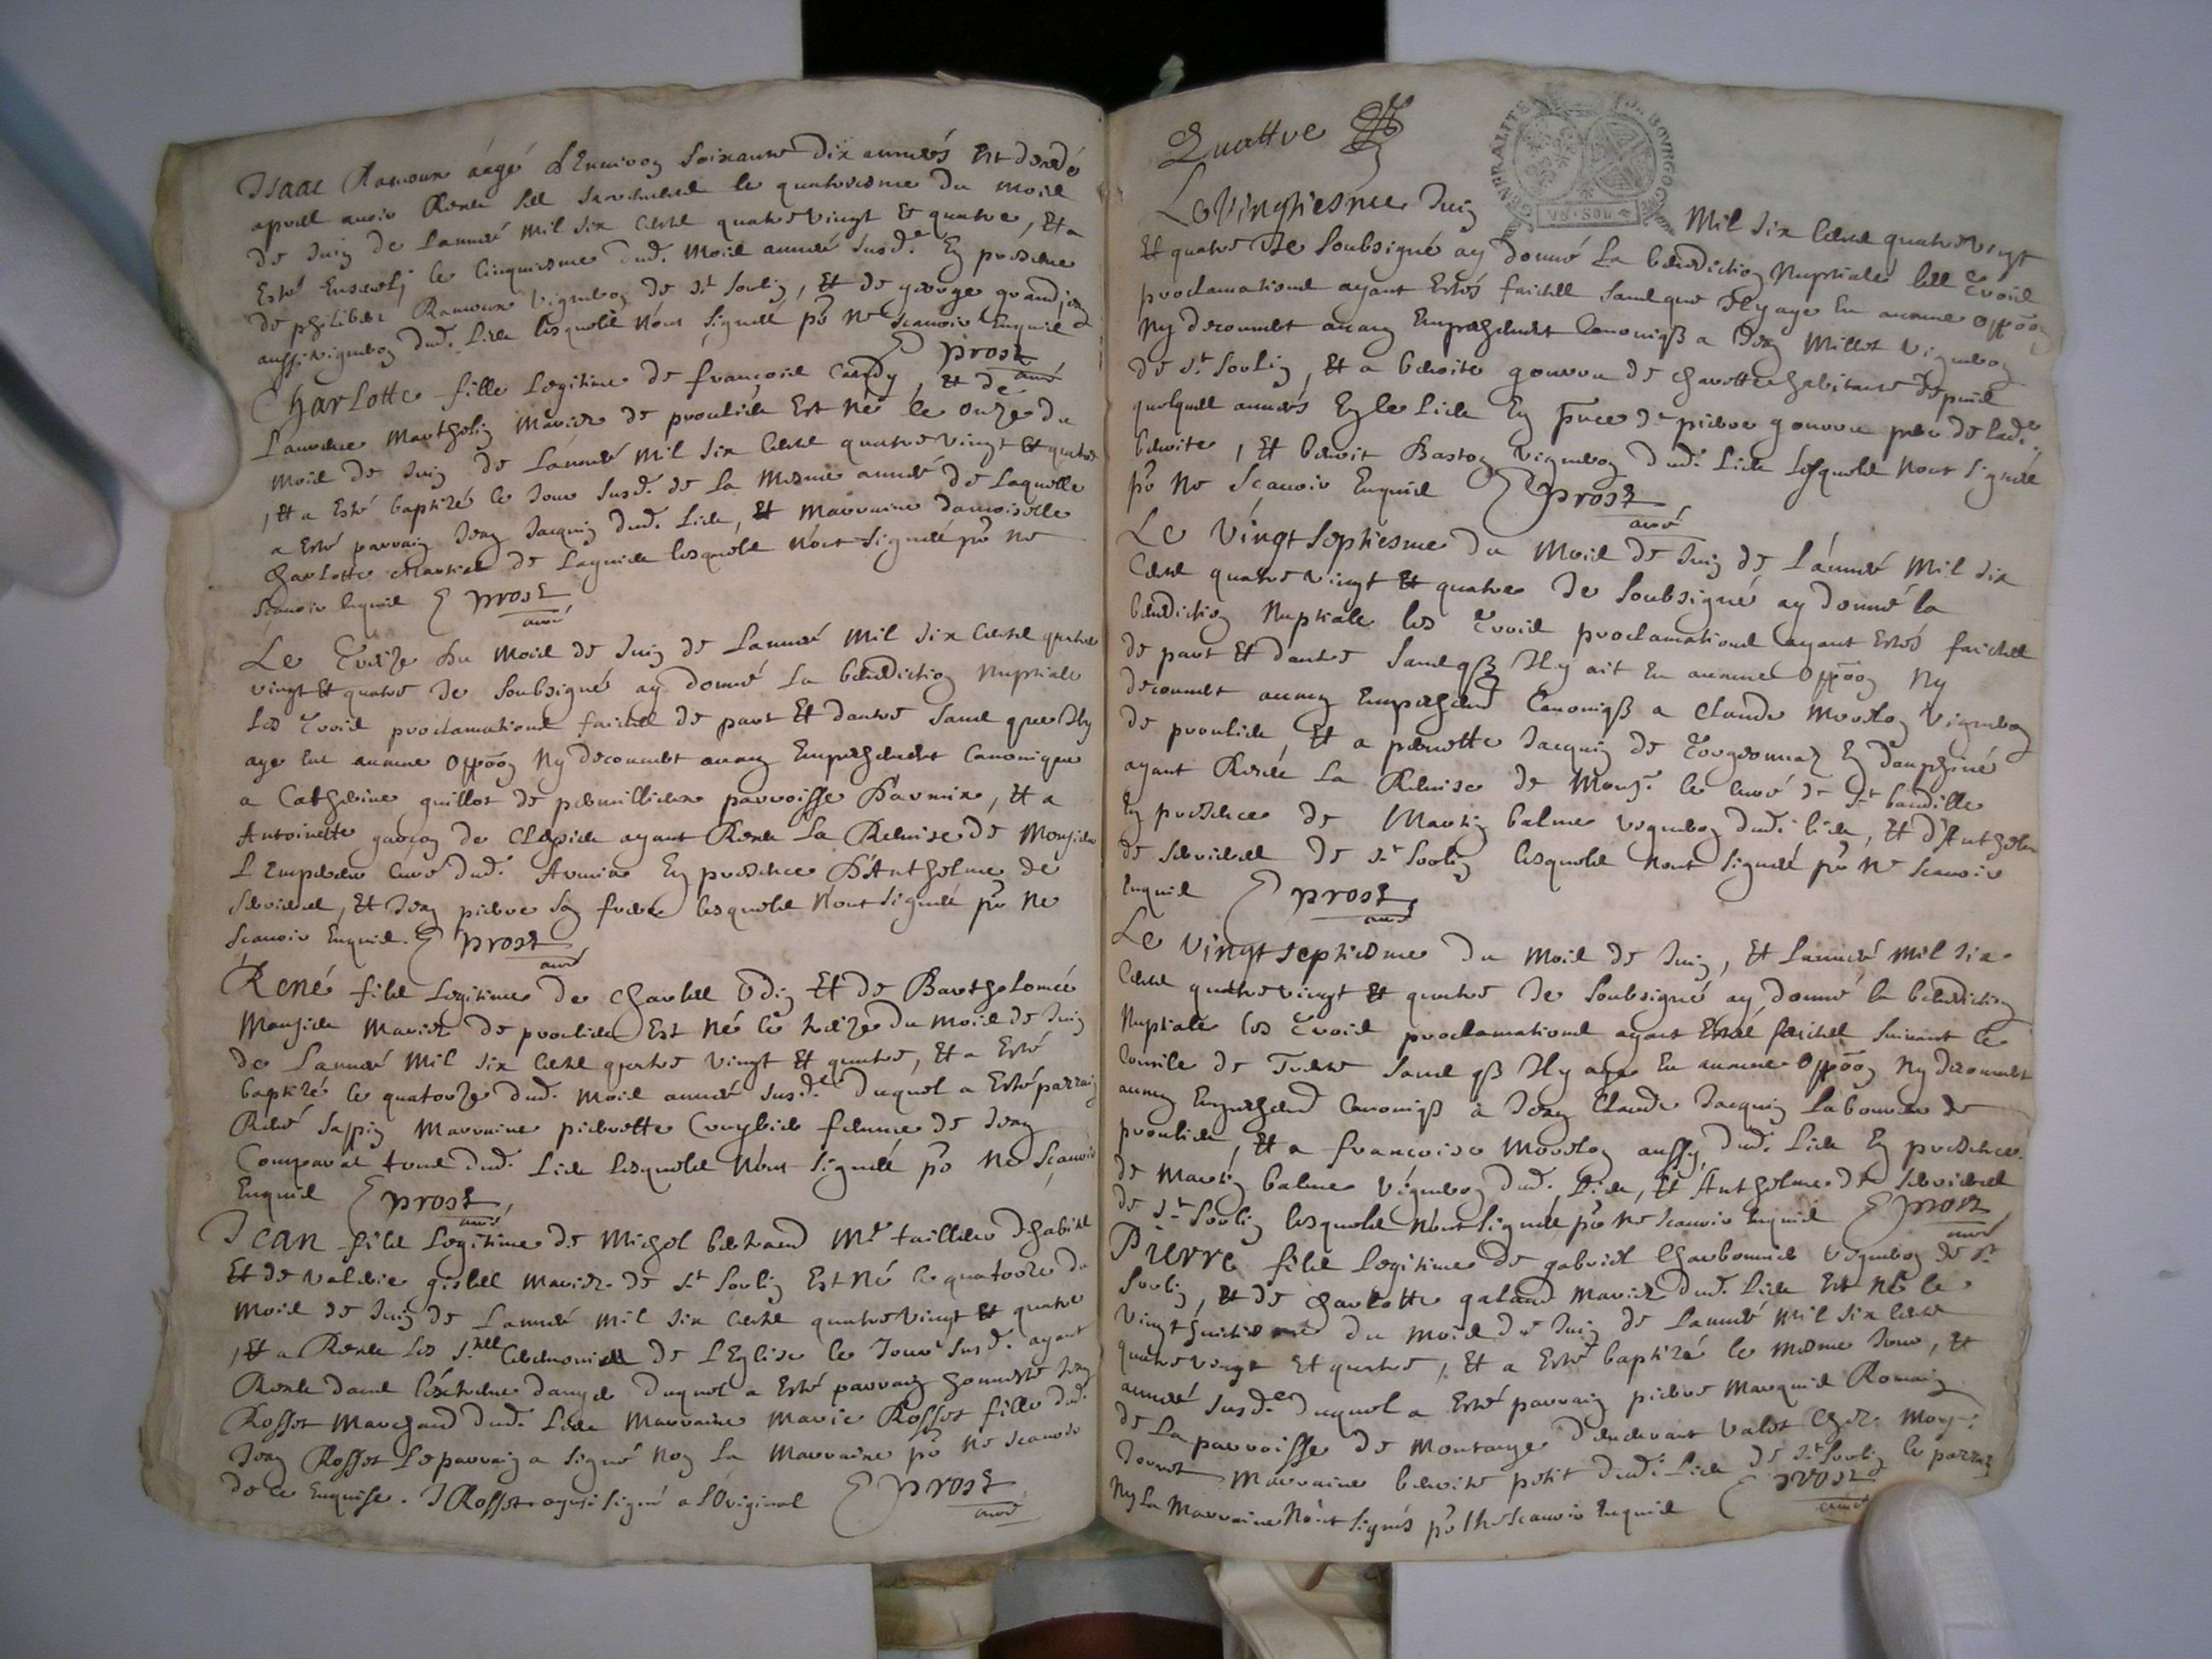 Isaac Ramoux aagé d'Environ soixante dix années Est decedé
apres avoir Receu ses sacrements le quatriesme du mois
de Juin de l'année mil six cents quatre vingt Et quatre, Et a
Esté Ensevely le cinquiesme dud. mois année susd.e En presence
de philibert Ramoux vigneron de st sorlin, Et de george grandjean
aussi vigneron dud. lieu lesquels n'ont signés pr ne scavoir Enquis
prost
curé
Charlotte fille Legitime de françois , Et de
Laurence Marthelin mariez de proulieu Est né le onze du
mois de Juin de L'année mil six cents quatre vingt Et quatre
, Et a Esté baptizé le Jour susd. de la mesme année de Laquelle
a Esté parrain Jean Jacquin dud. lieu, Et marraine damoiselle
charlotte de Lagnieu lesquels n'ont signés pr ne
scavoir Enquis prost
curé
Le treize du mois de Juin de L'année mil six cents quatre
vingt Et quatre Je soubsigné ay donné La benediction Nuptiale
Les trois proclamations faictes de part Et dautre sans que Ily
aye Eue aucune oppõon Ny decouvert aucun Empeschement Canonique
a Catherine guillot de parroisse d'armix, Et a
Antoinette de ayant Receu La Remise de Monsieur
L'Empereur curé dud. Armix En presence d'Anthelme de
, Et Jean pierre son frere lesquels n'ont signés pr ne
scavoir Enquis. prost
curé
René fils Legitime de charles Odin Et de Bartholomée
Mariez de proulieu Est né le treize du mois de Juin
de L'année mil six cents quatre vingt Et quatre, Et a Esté
baptizé le quatorze dud. mois année susd.e Duquel a Esté parrain
René sappin marraine pierrette femme de Jean
Comparat tous dud. lieu lesquels n'ont signés pr ne scavoir
Enquis prost
curé
Jean fils Legitime de Michel bertrand M.e tailleur d'habits
Et de valerie mariez de st sorlin Est né le quatorze du
mois de Juin de L'année mil six cents quatre vingt Et quatre
, Et a Receu les s.tes Ceremonies de L'Eglise le Jour susd. ayant
Receu dans duquel a Esté parrain honneste Jean
Rosset Marchand dud. lieu marraine marie Rosset fille dud.
Jean Rosset Le parrain a signé non la marraine pr ne scavoir
de ce Enquise. J Rosset ainsi signé a l'Original prost
curé
Quattre
GENERALITE DE BOVRGOGNE
VN SOL
Le vingtiesme Juin Mil six cents quatre vingt
Et quatre Je soubsigné ay donné La benediction Nuptiale les trois
proclamations ayant Estés faictes sans que Ily aye Eu aucune oppõon
Ny decouvert aucun Empeschement Canoniq a Jean Millet vigneron
de st sorlin, Et a benoite gouvou de charette habitante depuis
quelques années En le lieu En pnce de pierre gouvou pere de lad.e
benoite, Et benoit Baston vigneron dud. lieu lesquels n'ont signés
pr ne scavoir Enquis prost
curé
Le vingt septiesme du mois de Juin de L'année mil six
cents quatre vingt Et quatre Je soubsigné ay donné la
benediction Nuptiale les trois proclamations ayant Estés faictes
de part Et dautre sans q Ily ait Eu aucune oppõon Ny
decouvert aucun Empeschemt Canoniq a claude vigneron
de proulieu, Et a pernette Jacquin de En dauphiné
ayant Receu La Remise de Mons.r le curé de st baudille
En presence de Martin balme vigneron dud. lieu, Et d'Anthelme
de de st sorlin lesquels n'ont signés pr ne scavoir
Enquis prost
curé
Le vingt septiesme du mois de Juin, Et L'année mil six
cents quatre vingt Et quatre Je soubsigné ay donné la benediction
Nuptiale les trois proclamations ayant Estés faictes suivant le
Concile de Trente sans q Ily aye Eu aucune oppõon Ny decouvert
aucun Empeschemt Canoniq a Jean Claude Jacquin laboureur de
proulieu, Et a francoise aussy dud. lieu En presence
de Martin balme vigneron dud. lieu, Et Anthelme de
de st sorlin lesquels n'ont signés pr ne scavoir Enquis prost
curé
Pierre fils Legitime de gabriel Charbonnier vigneron de st
sorlin, Et de charlotte galand mariez dud. lieu Est né le
vingt huictiesme du mois de Juin de L'année mil six cents
quatre vingt Et quatre, Et a Esté baptizé le mesme Jour, Et
année susd.e Duquel a Esté parrain pierre Romain
de La parroisse de valet chez Mons.r
marraine benoite petit dud. lieu de st sorlin le parrain
Ny La Marraine n'ont signés pr ne scavoir Enquis prost
curé